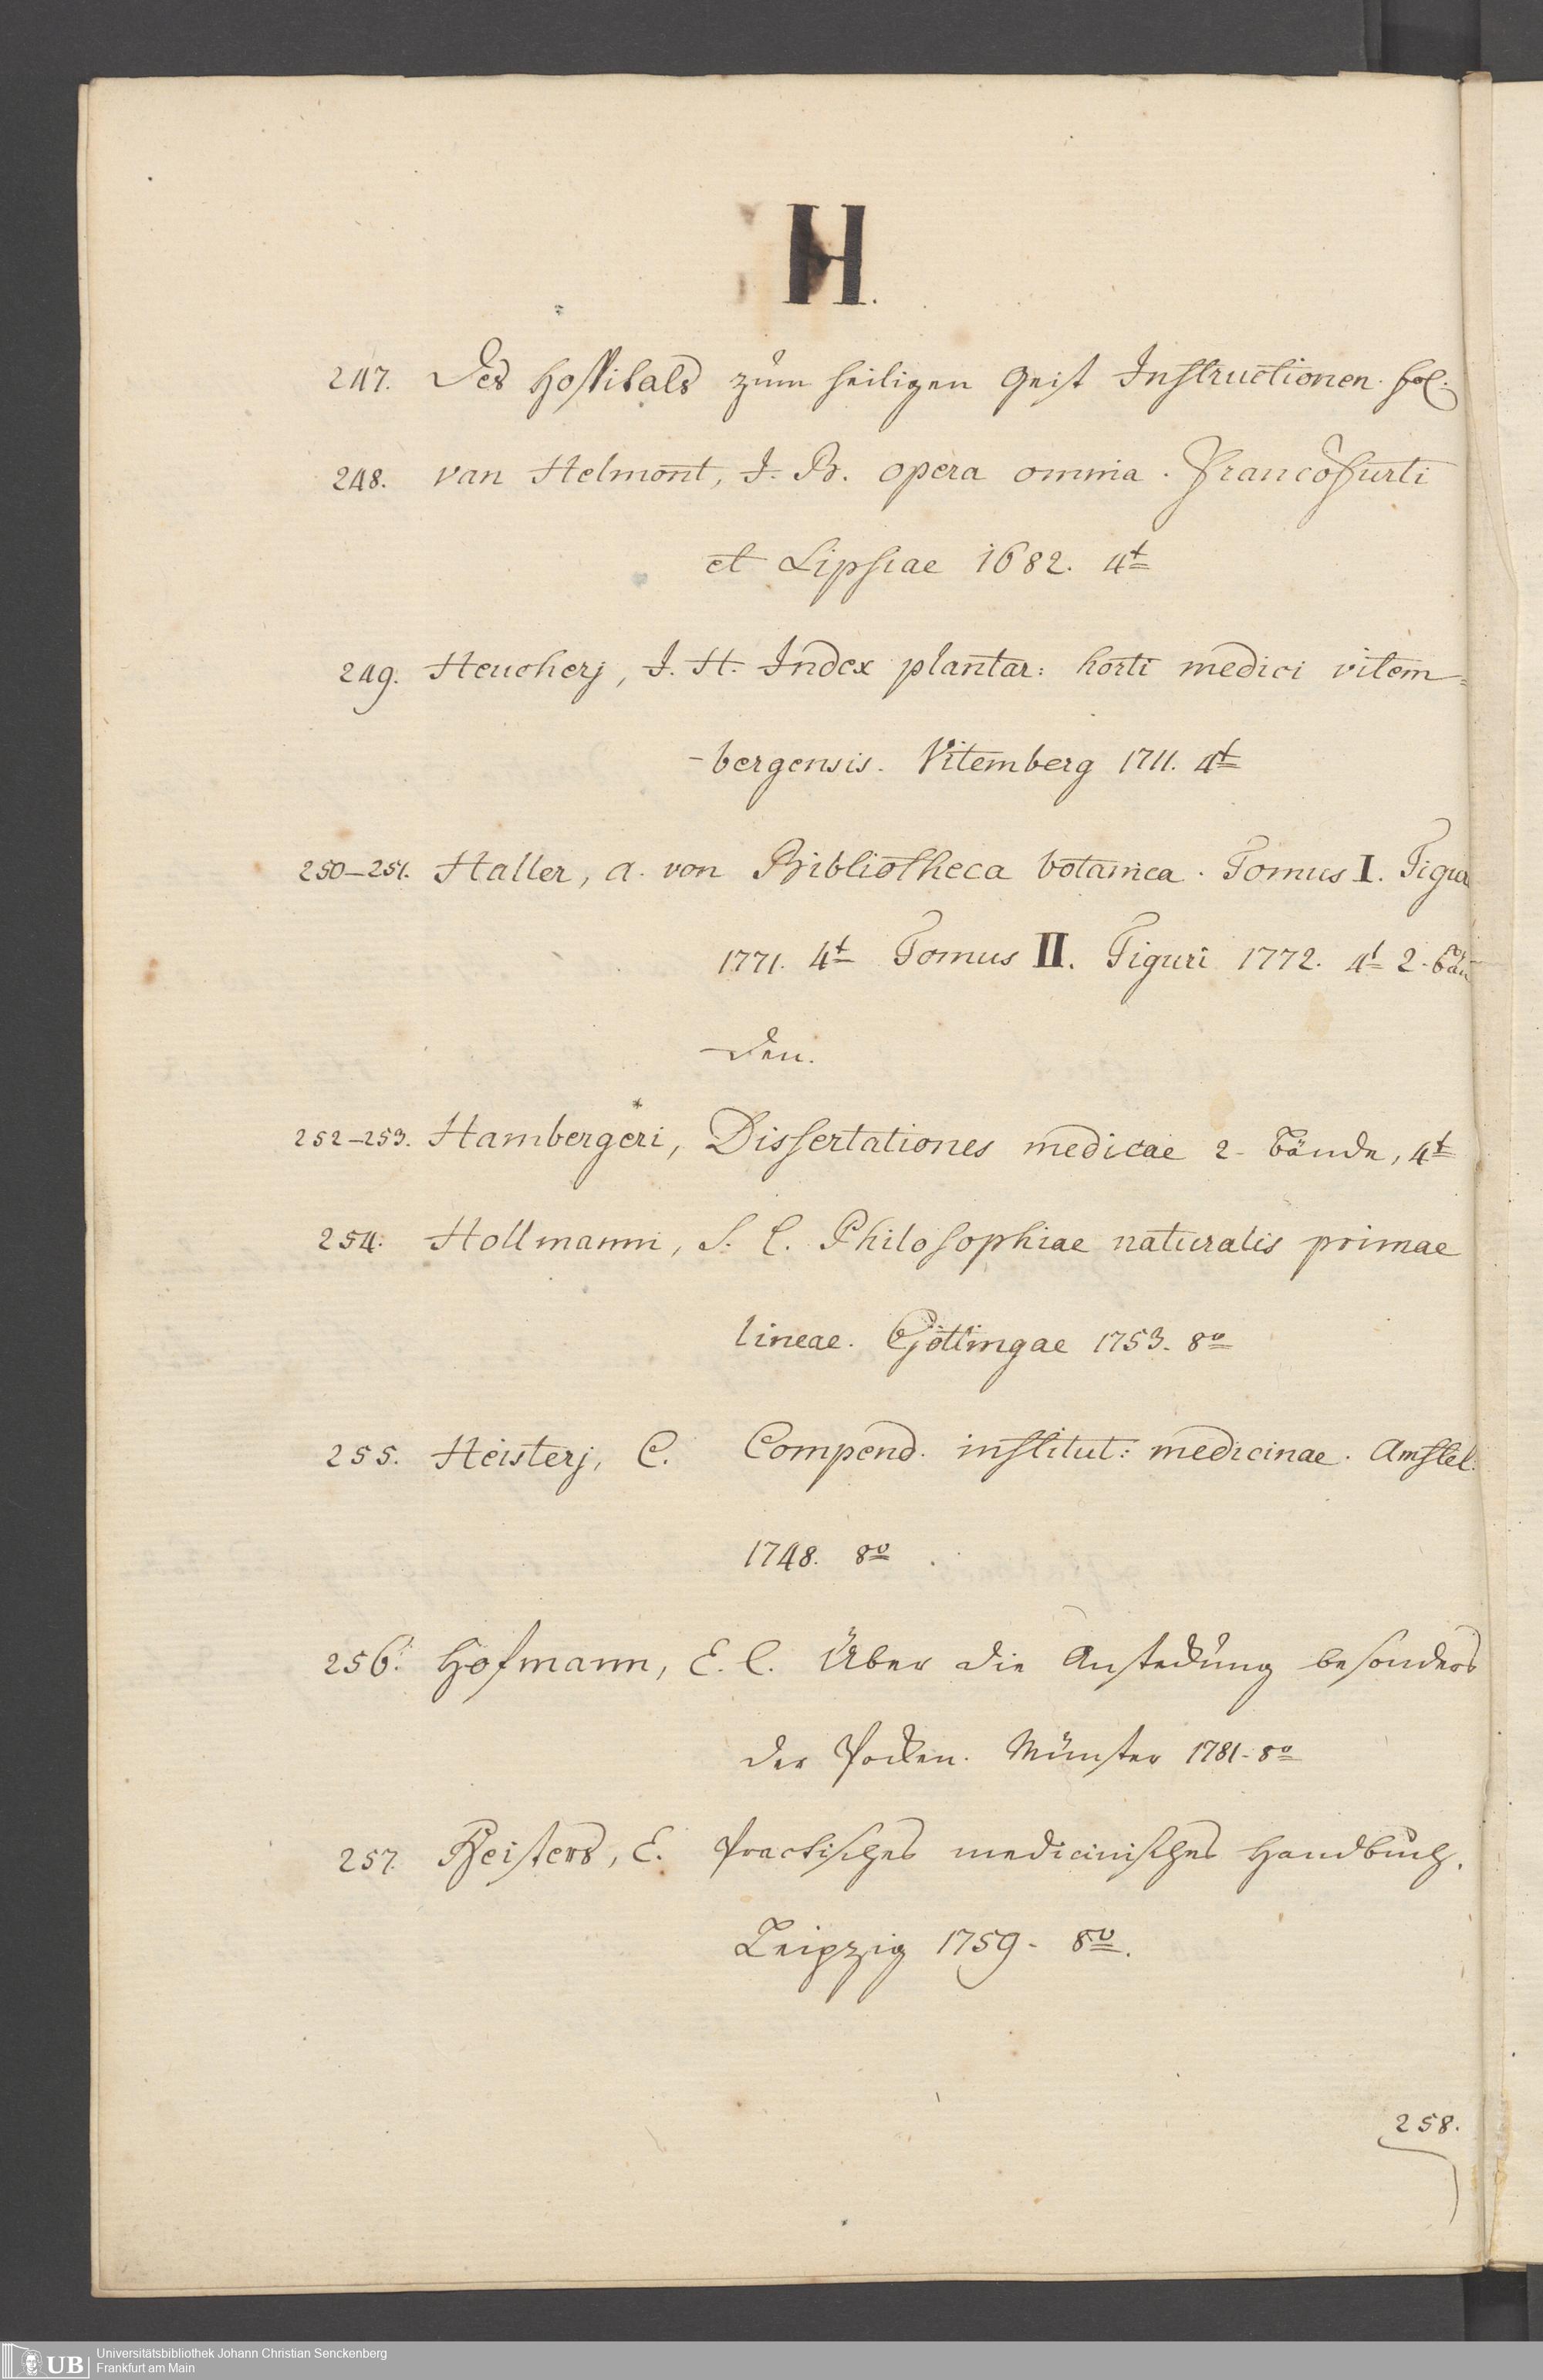 H.
247. Des Hospitals zum heiligen Geist Instructionen. fol.
248. van Helmont, J. B. opera omnia. Francofurti
et Lipsiae 1682. 4t
249. Heucherj, J. H. Index plantar: horti medici vitem=
-bergensis. Vitemberg 1711. 4t
250-251. Haller, a. von Bibliotheca botanica. Tomus I. Tigu
1771. 4t Tomus II. Tiguri 1772. 4t 2. Bän
den.
252-253. Hambergeri, Dissertationes medicae 2. Bände, 4t
254. Hollmanni, S. C. Philosophiae naturalis primae
lineae. Göttingae 1753. 8o
255. Heisterj, C. Compend. institut: medicinae. Amstel.
1748. 8o
256. Hofmann, C. L. Über die Anstekung besonders
der Pocken. Münster 1781. 8o
257. Heisters, C. Practisches medicinisches Handbuch.
Leipzig 1759. 8o.
258.
UB
Universitätsbibliothek Johann Christian Senckenberg
Frankfurt am Main